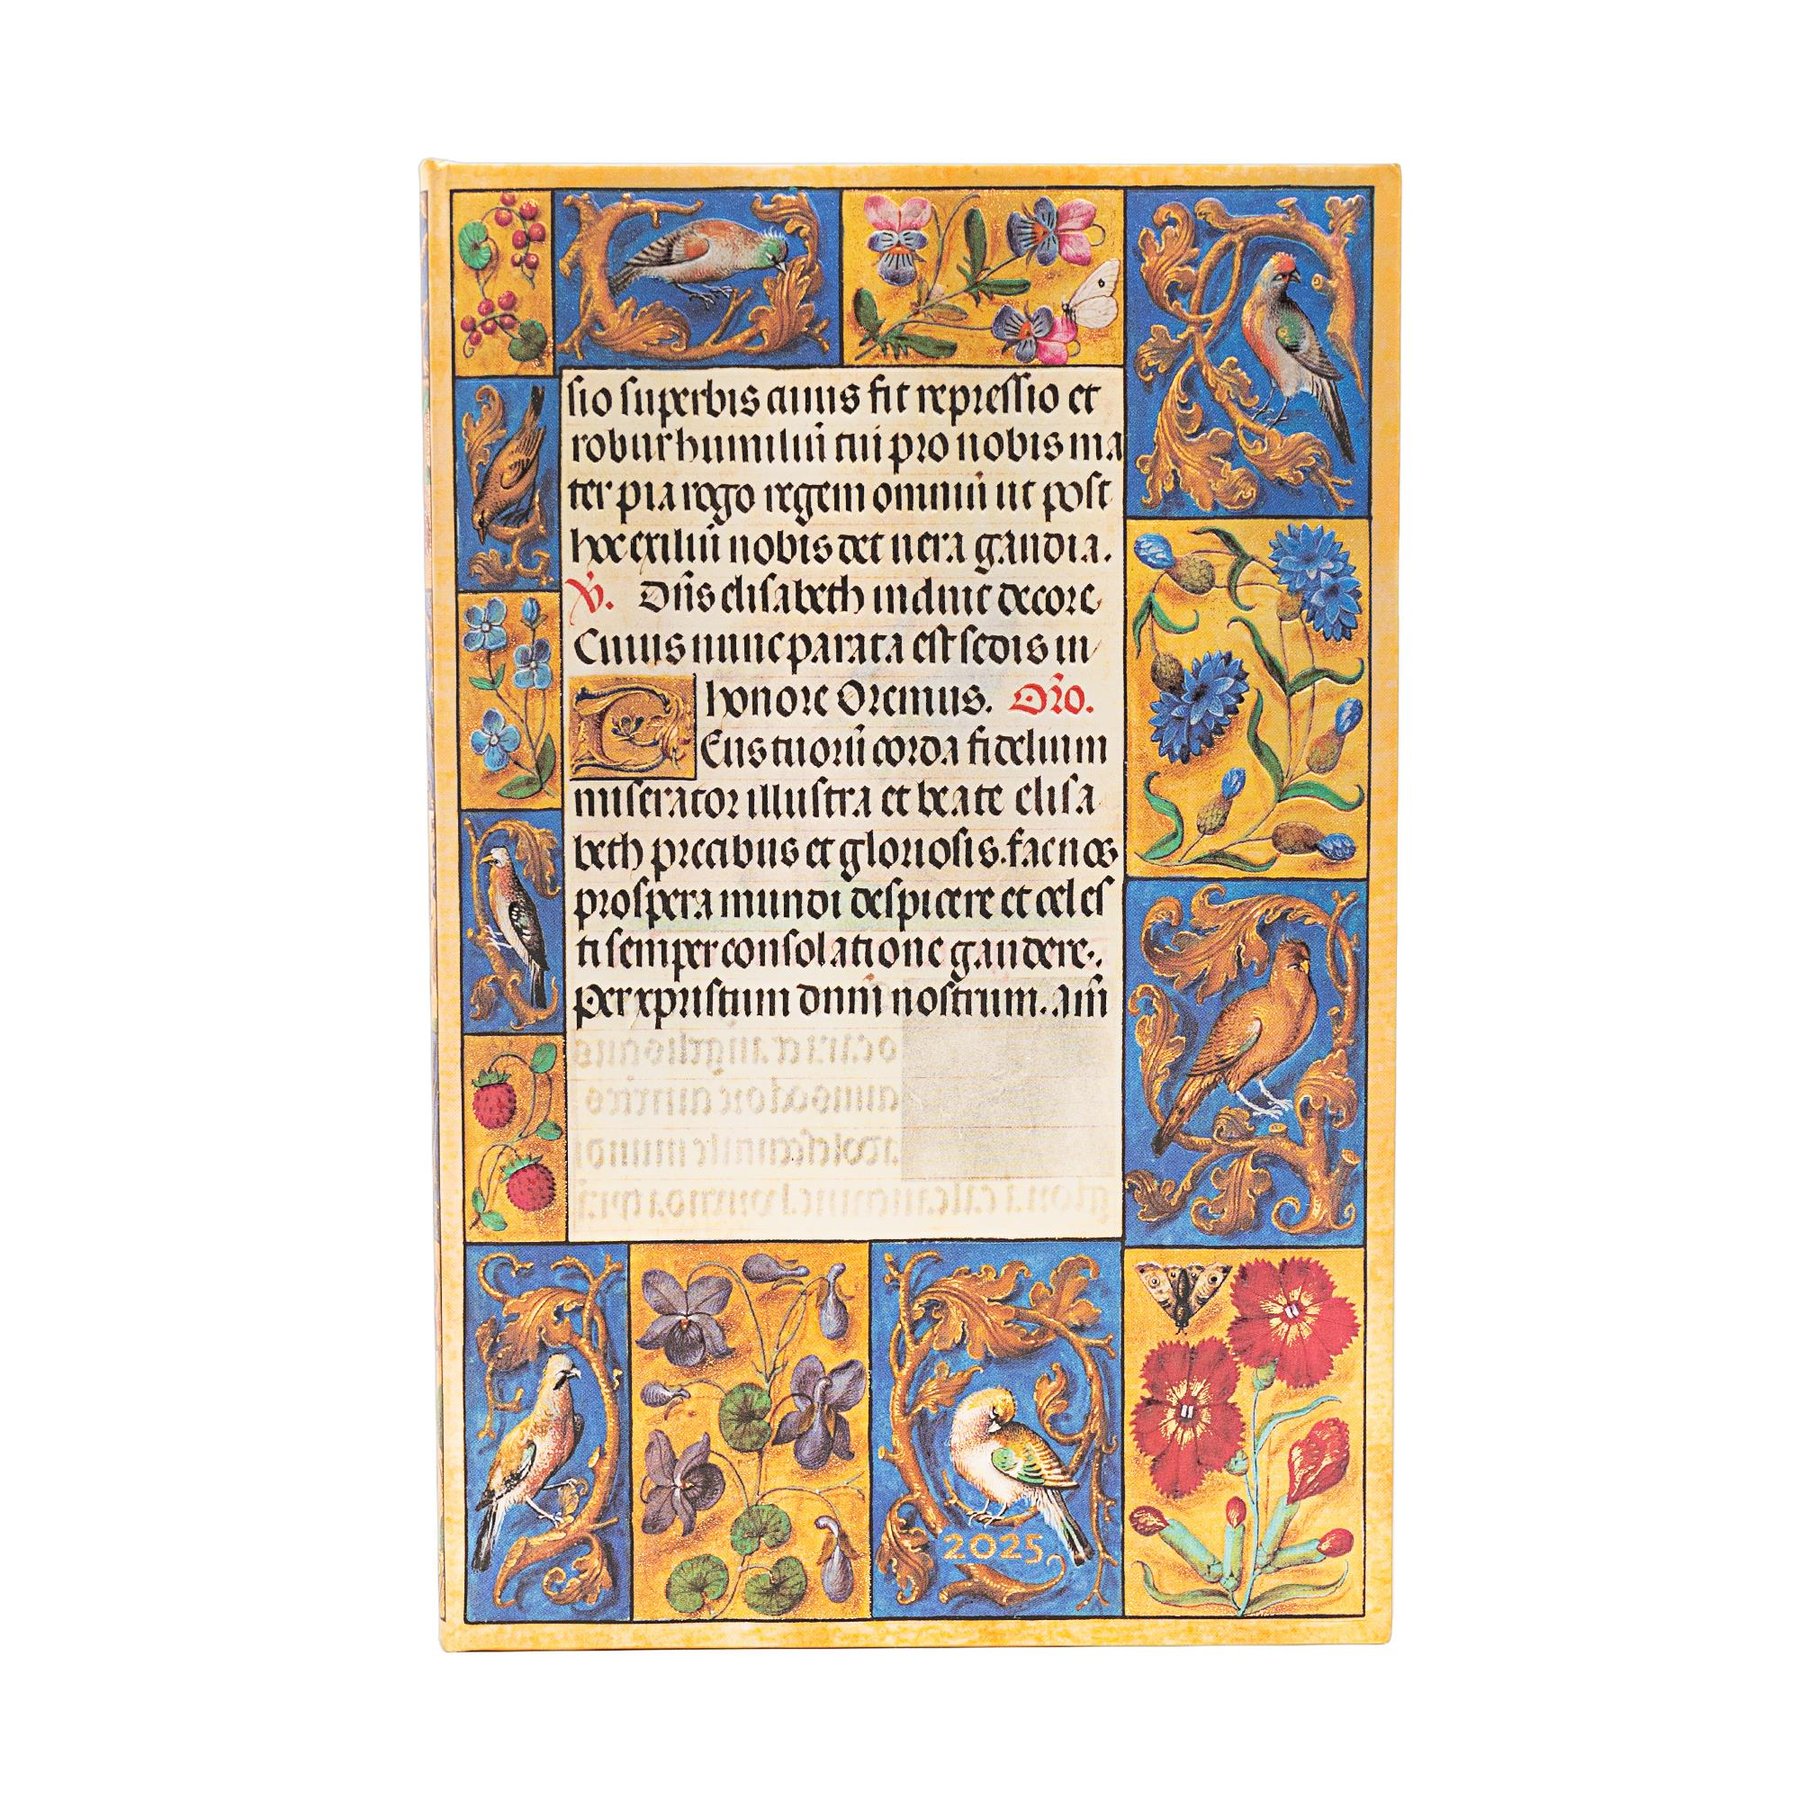 sio superbis cuius fit repressio et
robur humiliū tui pro nobis ma
ter pia rogo regem omniū ut post
hoc exiliū nobis det uera gaudia.
V̄. Dn̄s elisabeth induit decore
Cuius nunc parata est sedis in
honore Oremus. Or̄o.
DEus tuorū corda fidelium
miserator illustra et beate elisa
beth precibus et gloriosis. fac nos
prospera mundi despicere et celes
ti semper consolatione gaudere.
Per xpristum dnm̄ nostrum. Am̄
2025